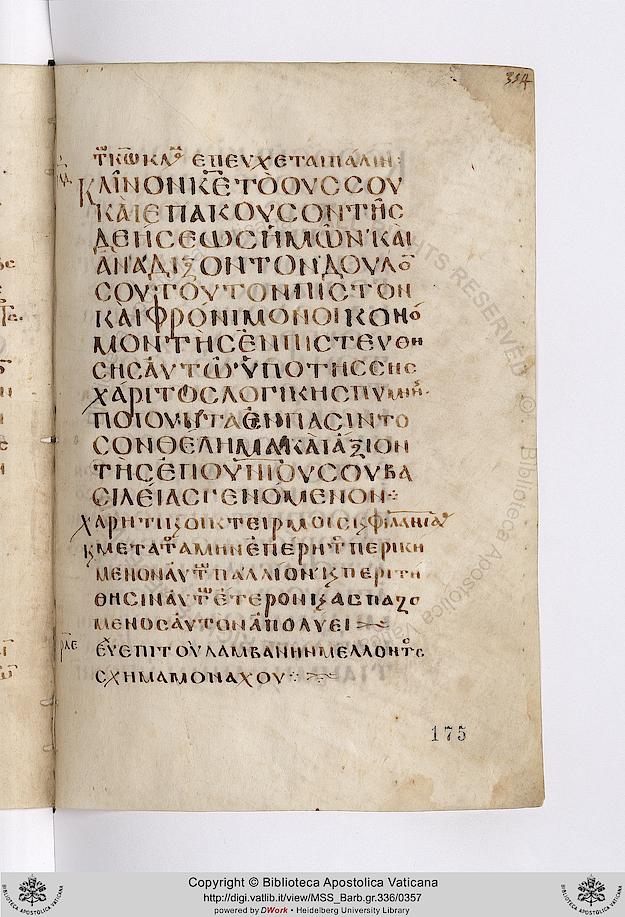 354
ΕΠΕΥΧΕΤΑΙ ΠΑΛΙΝ:
ΚΛΙΝΟΝ ΚΕ ΤΟ ΟΥΣ ΣΟΥ
ΚΑΙ ΕΠΑΚΟΥΣΟΝ ΤΗΣ
ΔΕΗΣΕΩΣ ΗΜΩΝ ΚΑΙ
ΑΝΑΔΙΞΟΝ ΤΟΝ ΔΟΥΛΟ
ΣΟΥ ΤΟΥΤΟΝ ΠΙΣΤΟΝ
ΚΑΙ ΦΡΟΝΙΜΟΝ ΟΙΚΟΝΟ
ΜΟΝ ΤΗΣ ΕΝΠΙΣΤΕΥΘΗ
ΣΗΣ ΑΥΤΩ ΥΠΟ ΤΗΣ ΣΗΣ
ΧΑΡΙΤΟΣ ΛΟΓΙΚΗΣ ΠΥΜΝΗ
ΠΟΙΟΥΝΤΑ ΕΝ ΠΑΣΙΝ ΤΟ
ΣΟΝ ΘΕΛΗΜΑ ΚΑΙ ΑΞΙΟΝ
ΤΗΣ ΕΠΟΥΝΙΟΥ ΣΟΥ ΒΑ
ΣΙΛΕΙΑΣ ΓΕΝΟΜΕΝΟΝ:
ΧΑΡΗΤΙ Κ ΟΙΚΤΕΙΡΜΟΙΣ Κ ΦΙΛΑΝΙΑ
Κ ΜΕΤΑ ΤΟ ΑΜΗΝ ΕΠΕΡΗ ΤΟ ΠΕΡΙΚΗ
ΜΕΝΟΝ ΑΥΤΩ ΠΑΛΛΙΟΝ Κ ΠΕΡΙΤΗ
ΘΗΣΙΝ ΑΥΤΩ ΕΤΕΡΟΝ Κ ΑΣΠΑΖΟ
ΜΕΝΟΣ ΑΥΤΟΝ ΑΠΟΛΥΕΙ
ΡΛΕ ΕΥ ΕΠΙ ΤΟΥ ΛΑΜΒΑΝΗΝ ΜΕΛΛΟΝΤΟΣ
ΣΧΗΜΑ ΜΟΝΑΧΟΥ:
175
Copyright © Biblioteca Apostolica Vaticana
http://digi.vatlib.it/view/MSS_Barb.gr.336/0357
powered by DWork • Heidelberg University Library